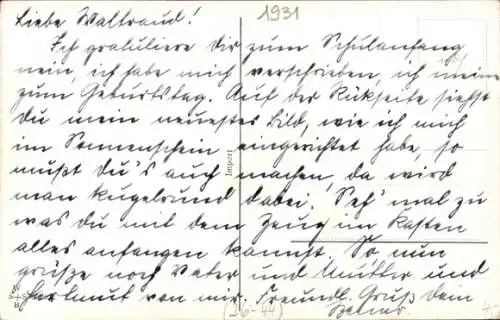 1931
Liebe Waltraud!
Ich gratuliere Dir zum Schulanfang,
nein, ich habe mich verschrieben, ich meine
zum Geburtstag. Auf der Rükseite siehst
Du mein neuestes Bild, wie ich mich
im Sonnenschein eingerichtet habe, so
mußt Du's auch machen, da wird
man kugelrund dabei. Seh' mal zu
was Du mit dem Zeug im Kasten
alles anfangen kannst. So nun
grüße noch Vater und Mutter und
Hartmut von mir. Freundl. Gruß Dein
Import